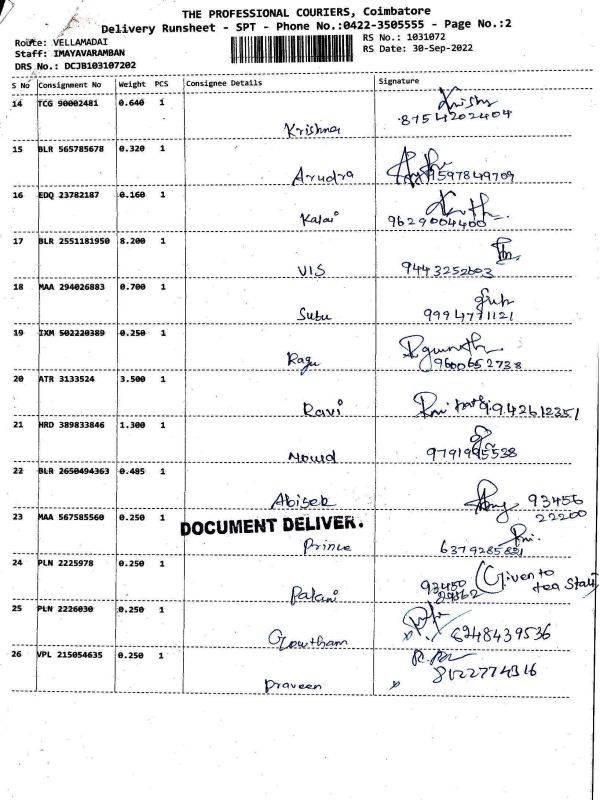 THE PROFESSIONAL COURIERS, Coimbatore
Delivery Runsheet - SPT - Phone No.:0422-3505555 - Page No.:2
Route: VELLAMADAI
RS No.: 1031072
Staff: IMAYAVARAMBAN
RS Date: 30-Sep-2022
DRS No.: DCJB103107202
S No Consignment No Weight PCS Consignee Details Signature
14 TCG 90002481 0.640 1
Krishna 8754202404
15 BLR 565785678 0.320 1
Arudra 9597849709
16 EDQ 23782187 0.160 1
Kalai 9629004400
17 BLR 2551181950 8.200 1
VIS 9443252603
18 MAA 294026883 0.700 1
Subu 9994771121
19 IXM 502220389 0.250 1
Ragu 9600652738
20 ATR 3133524 3.500 1
Ravi 9942612351
21 HRD 389833846 1.300 1
9791995538
22 BLR 2650494363 0.485 1
Abisek 93456
22200
23 MAA 567585560 0.250 1
DOCUMENT DELIVER.
Prince 6379285821
24 PLN 2225978 0.250 1
Palani 93450 (Given to
tea Stall
25 PLN 2226030 0.250 1
Gowtham 6248439536
26 VPL 215054635 0.250 1
Praveen 8122774316